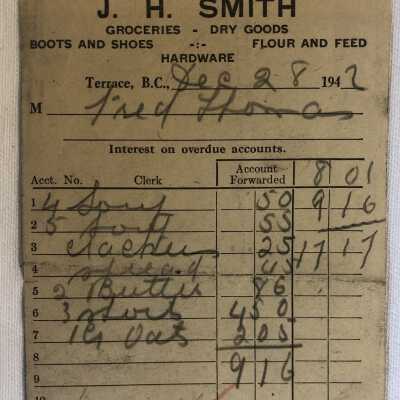 J. H. SMITH
GROCERIES - DRY GOODS
BOOTS AND SHOES -:- FLOUR AND FEED
HARDWARE
Terrace, B.C., Dec 28 1942
M Fred Thomas
Interest on overdue accounts.
Acct. No. Clerk Account Forwarded 8 01
1 4 50 9 16
2 5 55
3 25 17 17
4 spread 45
5 2 Butter 86
6 3 4 50
7 Oats 2 05
8 9 16
9
10